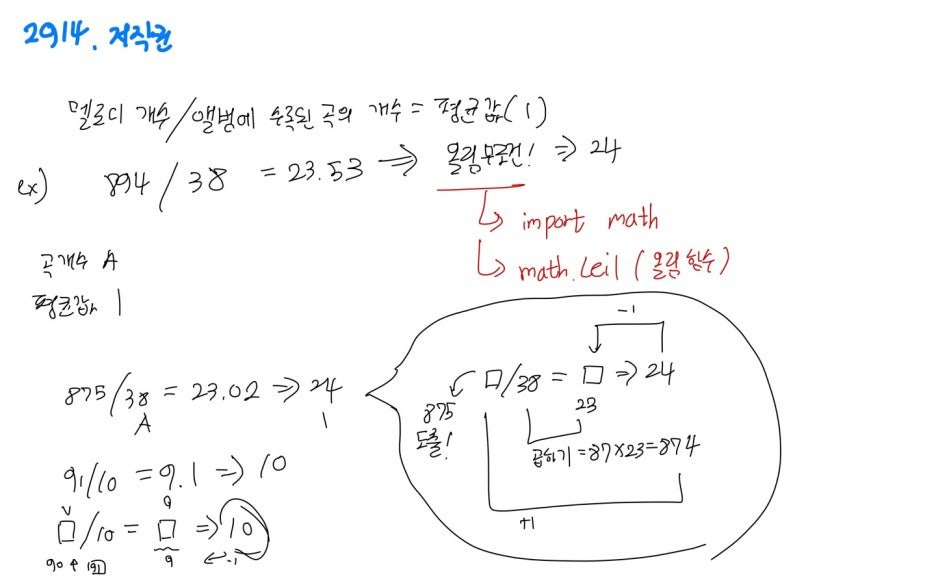 2914. 저작권
멜로디 개수/앨범에 수록된 곡의 개수 = 평균값(I)
ex) 894/38 = 23.53 ⇒ 올림무조건! ⇒ 24
↳ import math
↳ math.ceil (올림 함수)
곡개수 A
평균값 I
875/38 = 23.02 ⇒ 24
A I
91/10 = 9.1 ⇒ 10
9
□/10 = □ ⇒ 10
90+91 9 ←-1
-1
□/38 = □ ⇒ 24
875 23
도출!
곱하기 = 87×23=874
+1